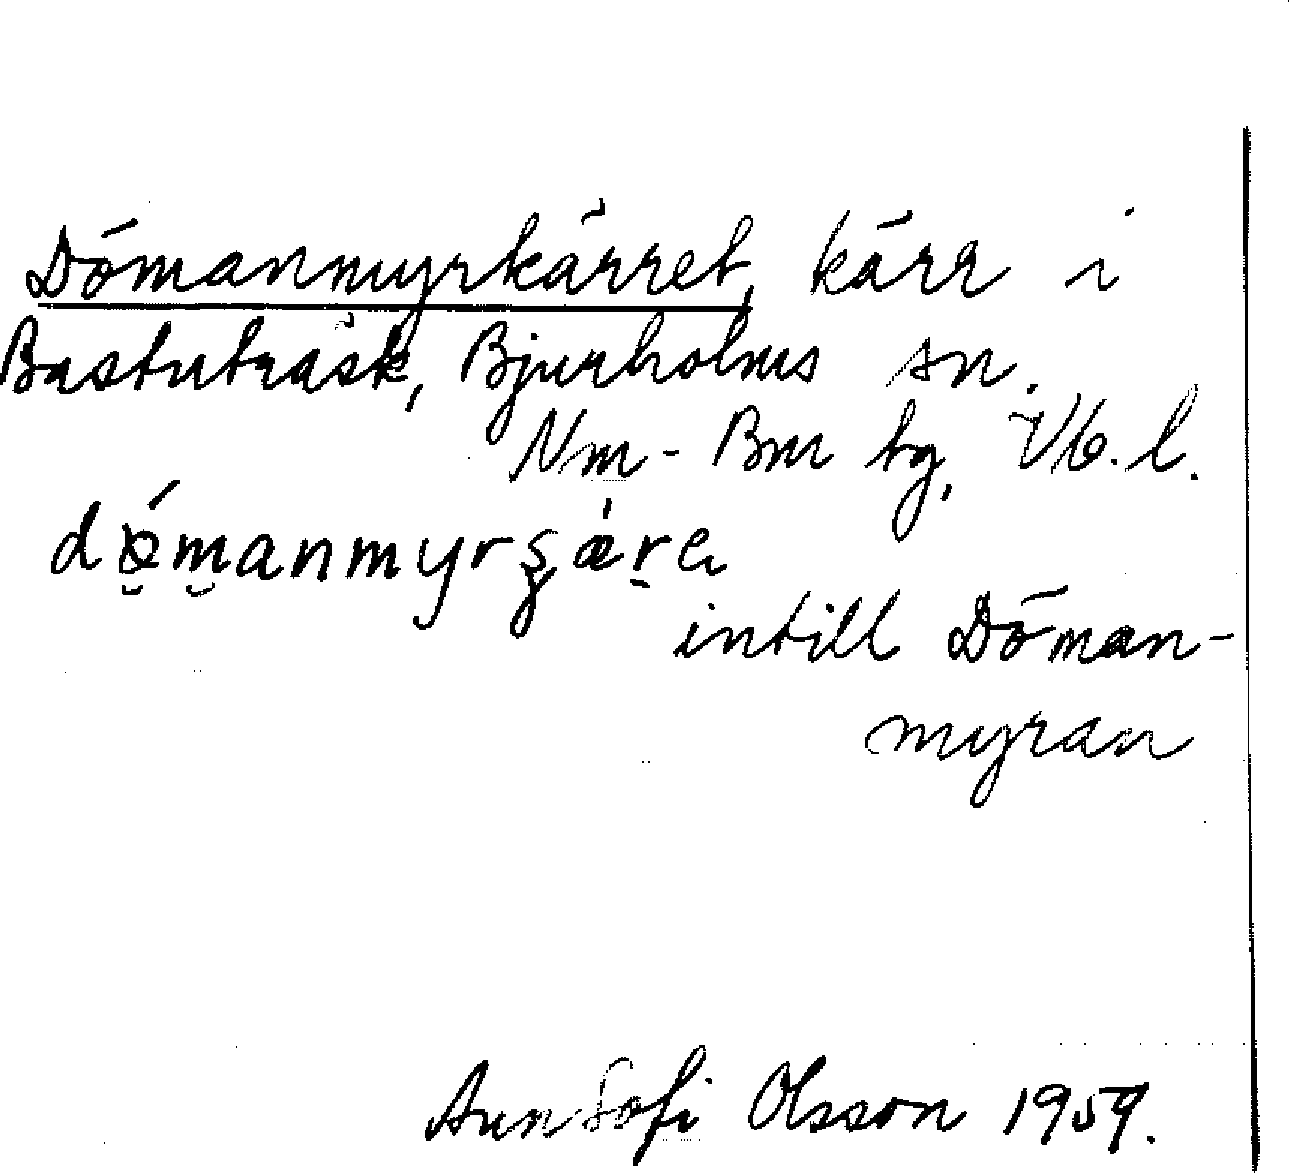 Dömanmyrkärret, kärr i
Bastuträsk, Bjurholms sn.
Nm - Bm tg, Vb. l.
intill Döman-
myran
Ann Sofi Olsson 1959.